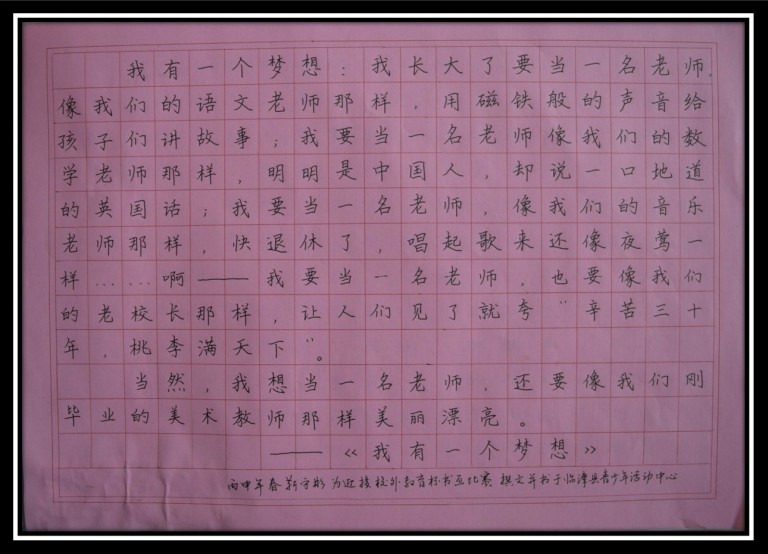 我有一个梦想：我长大了要当一名老师，
像我们的语文老师那样，用磁铁般的声音给
孩子们讲故事；我要当一名老师像我们的数
学老师那样，明明是中国人，却说一口地道
的英国话；我要当一名老师，像我们的音乐
老师那样，快退休了，唱起歌来还像夜莺一
样……啊——我要当一名老师，也要像我们
的老校长那样，让人们见了就夸“辛苦三十
年，桃李满天下”。
当然，我想当一名老师，还要像我们刚
毕业的美术教师那样美丽漂亮。
——《我有一个梦想》
丙申年春靳守彬为迎接校外教育杯书画比赛撰文并书于临漳县青少年活动中心